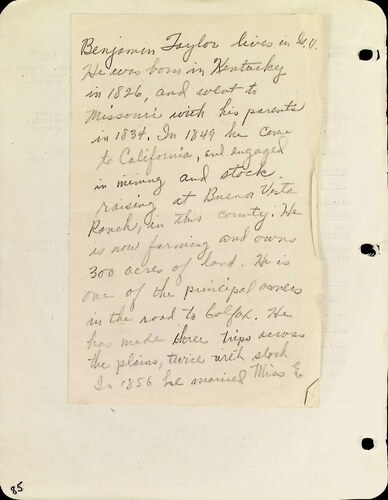 Benjamin Taylor lives in G.V.
He was born in Kentucky
in 1826, and went to
Missouri with his parents
in 1834. In 1849 he came
to California, and engaged
in mining and stock
raising at Buena Vista
Ranch, in this county. He
is now farming and owns
300 acres of land. He is
one of the principal owners
in the road to Colfax. He
has made three trips across
the plains, twice with stock
In 1856 he married Miss E
85